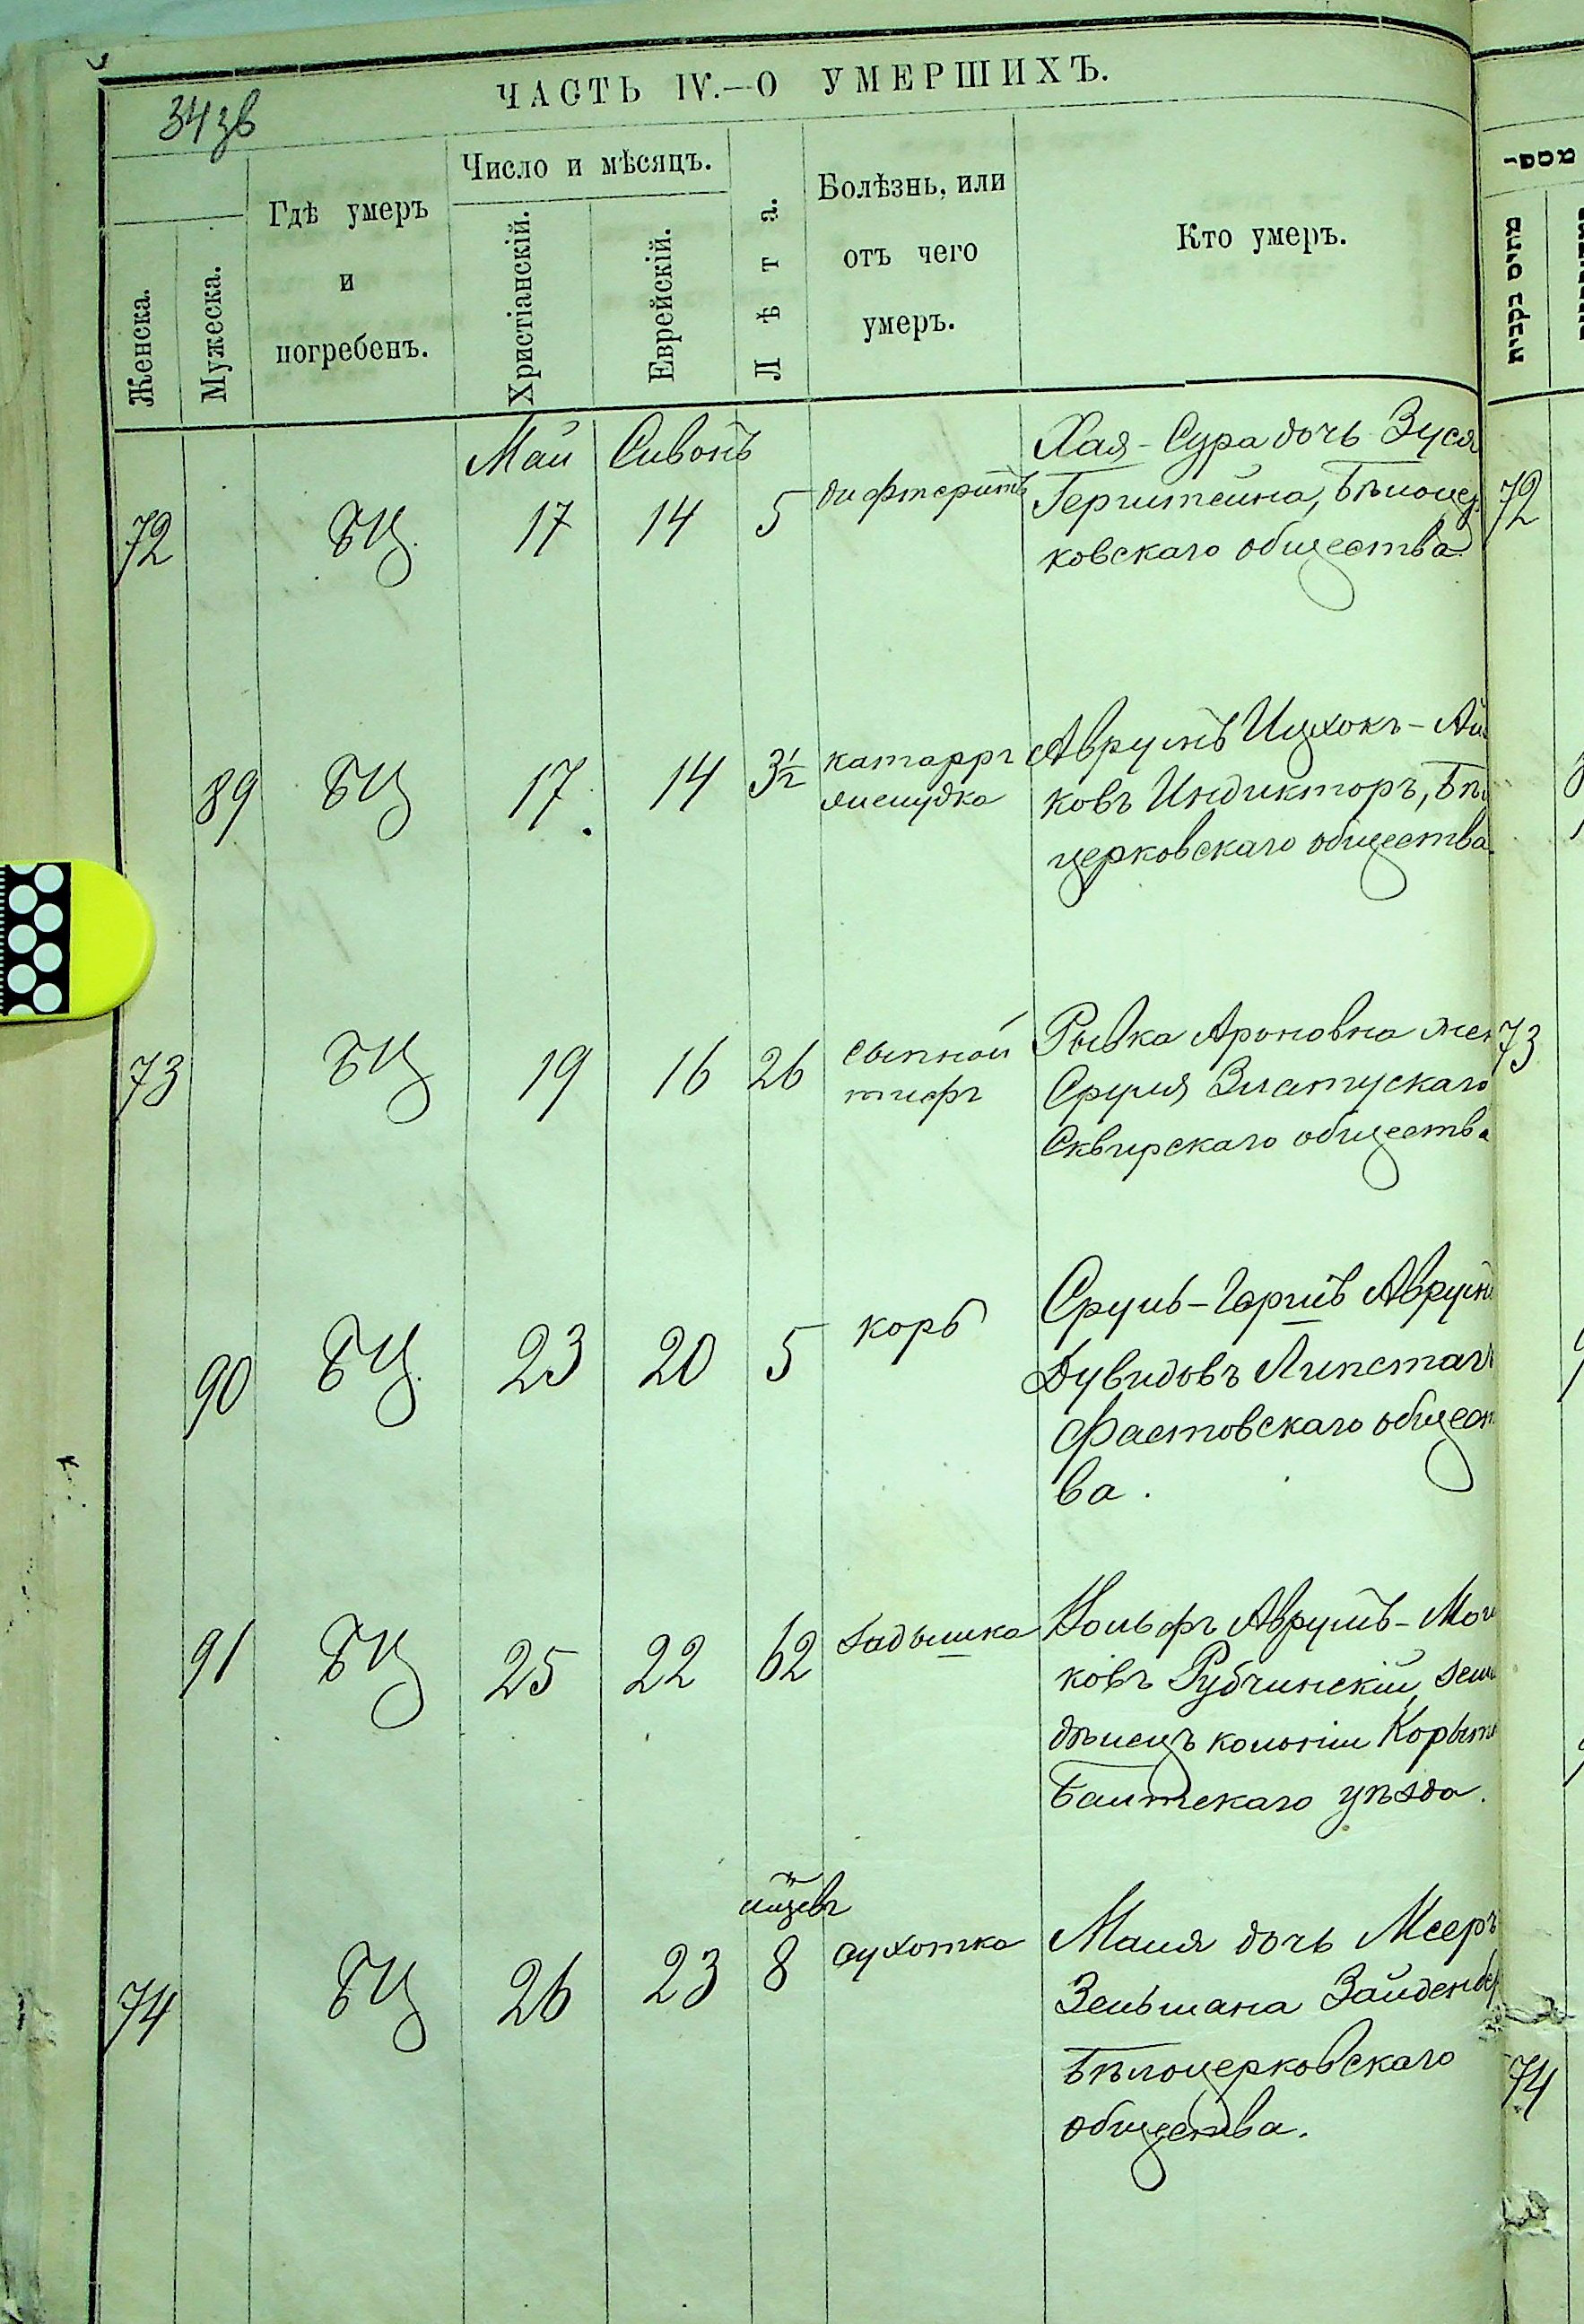 34 зв
ЧАСТЬ IV.—О УМЕРШИХЪ.
Женска.
Мужеска.
Гдѣ умеръ
и
погребенъ.
Число и мѣсяцъ.
Христіанскій.
Еврейскій.
Лѣта.
Болѣзнь, или
отъ чего
умеръ.
Кто умеръ.
מתים
Май Сивонъ
72 БЦ. 17 14 5 дифтеритъ
Хая-Сура дочь Зуся
Герштейна, Бѣлоцер
ковскаго общества.
72
89 БЦ 17. 14 3½ катарръ
желудка
Аврумъ Ицхокъ-Ай
ковъ Индикторъ, Бѣл
церковскаго общества.
73 БЦ 19 16 26 сыпной
тифъ
Рывка Ароновна жен
Сруля Златускаго
Сквирскаго общества
73
90 БЦ. 23 20 5 корь
Сруль-Герш Аврум
Дувидовъ Липстаг
Фастовскаго общест
ва.
91 БЦ 25 22 62 задышка
Вольфъ Аврумъ-Мош
ковъ Рубчинскій, земле
дѣлецъ колоніи Корытн
Балтскаго уѣзда.
мѣсцевъ
74 БЦ 26 23 8 сухотка
Маля дочь Меера
Зельмана Зайденбер
Бѣлоцерковскаго
общества.
74